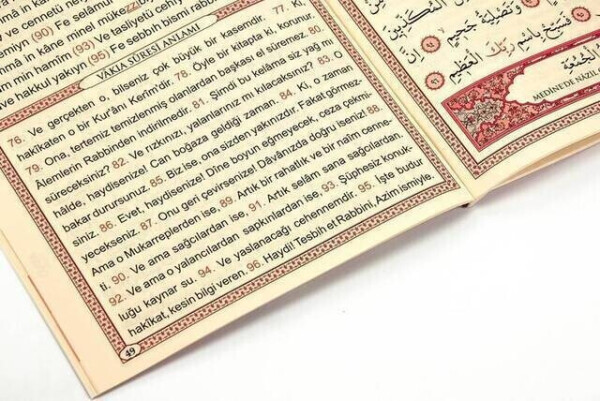 emiyn (90) Fe selâmün
ennetü na
înâ in kâne minel mükezzi
min hamîm (93) Ve tasliyetü cehıy
ve hakkul yakıyn (95) Fe sebbih bismi rabbi
VÂKIA SÛRESİ ANLAMI
76. Ve gerçekten o, bilseniz çok büyük bir kasemdir. 77. Ki,
hakîkaten o bir Kurânı Kerîm'dir. 78. Öyle bir kitapta ki, korunur.
79. Ona, tertemiz temizlenmiş olanlardan başkası el süremez. 80.
Âlemlerin Rabbinden indirilmedir. 81. Şimdi bu kelâma siz yağ mı
süreceksiniz? 82. Ve rızkınızı, yalanlarınız mı kılacaksınız? 83. O
hâlde, haydisenize! Can boğaza geldiği zaman. 84. Ki, o zaman
bakar durursunuz. 85. Biz ise, ona sizden yakınızdır. Fakat görmez-
siniz. 86. Evet, haydisenize! Dîne boyun eğmeyecek, ceza çekmi-
yecekseniz. 87. Onu geri çevirsenize! Dâvânızda doğru iseniz! 88.
Ama o Mukarreplerden ise, 89. Artık bir rahatlık ve bir naîm cenne-
ti. 90. Ve ama sağcılardan ise, 91. Artık selâm sana sağcılardan.
92. Ve ama o yalancılardan sapkınlardan ise. 93. Şüphesiz konuk-
luğu kaynar su. 94. Ve yaslanacağı cehennemdir. 95. İşte budur
hakîkat, kesin bilgi veren. 96. Haydi! Tesbih et Rabbini, Azim ismiyle.
49
الْمُكَذِّبِينَ
وَتَصْلِيَةُ جَحِيمٍ ﴿٩٤﴾ اِنَّ
فَسَبِّحْ بِاسْمِ رَبِّكَ الْعَظِيمِ ﴿٩٦﴾
الْجُمُعَةِ
MEDİNE'DE NÂZİL